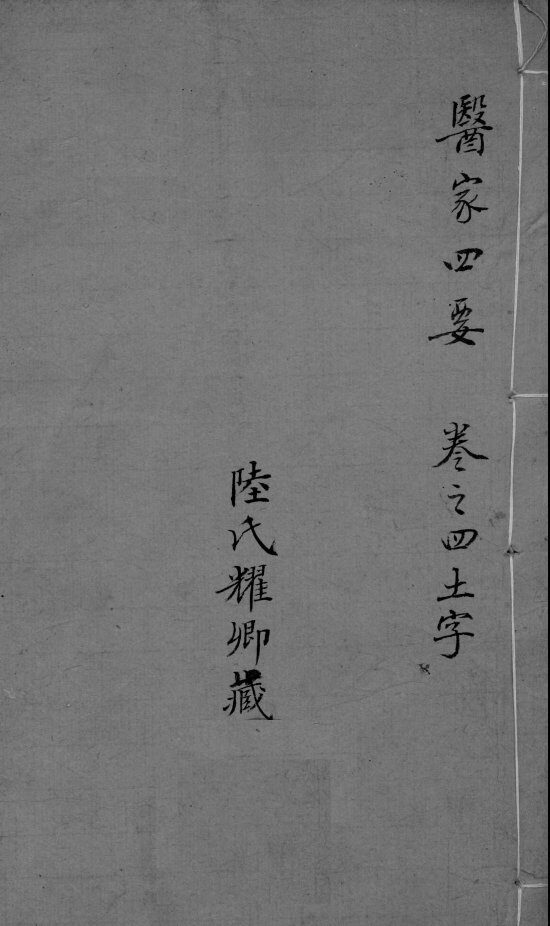 醫家四要　卷之四土字
陸氏耀卿藏